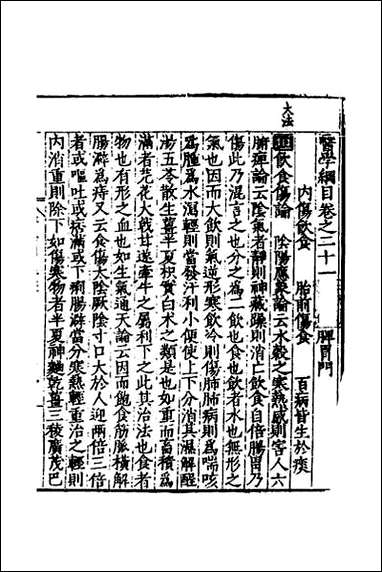 大法
醫學綱目卷之二十一 脾胃門
内傷飲食 胎前傷食 百病皆生於痰
飲食傷論 陰陽應象論云水穀之寒熱感則害人六
腑痺論云陰氣者靜則神藏躁則消亡飲食自倍腸胃乃
傷此乃混言之也分之為二飲也食也飲者水也無形之
氣也因而大飲則氣逆形寒飲冷則傷肺肺病則為喘咳
為腫為水瀉輕則當發汗利小便使上下分消其濕解酲
湯五苓散生薑半夏枳實白术之類是也如重而畜積為
滿者芫花大戟甘遂牽牛之屬利下之此其治法也食者
物也有形之血也如生氣通天論云因而飽食筋脈橫解
腸澼為痔又云食傷太陰厥陰寸口大於人迎兩倍三倍
者或嘔吐或痞滿或下痢腸澼當分寒熱輕重治之輕則
内消重則除下如傷寒物者半夏神麯乾薑三稜廣茂巴